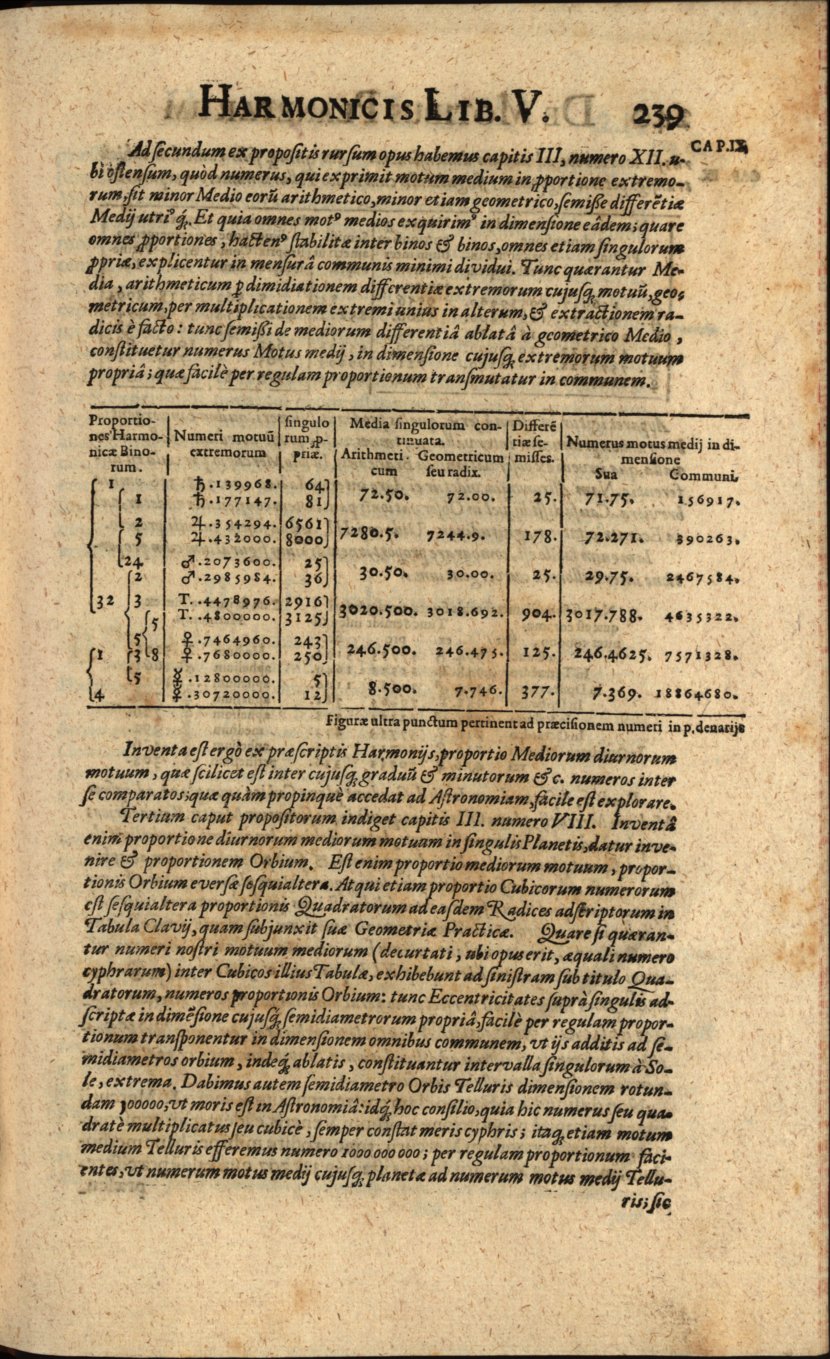 HARMONICIS LIB. V. 239
CAP.IX.
Ad ſecundum ex propoſitis rurſum opus habemus capitis III, numero XII. u-
bi oſtenſum, quòd numerus, qui exprimit motum medium in ꝓportione extremo-
rum, ſit minor Medio eorũ arithmetico, minor etiam geometrico, ſemiße differẽtiæ
Medij utriꝰ q́;. Et quia omnes motꝰ medios exquirimꝰ in dimenſione eâdem; quare
omnes ꝓportiones, hactenꝰ ſtabilitæ inter binos & binos, omnes etiam ſingulorum
ꝓpriæ, explicentur in menſurâ communis minimi dividui. Tunc quærantur Me-
dia, arithmeticum ꝑ dimidiationem differentiæ extremorum cujuſq; motuũ, geo-
metricum, per multiplicationem extremi unius in alterum, & extractionem ra-
dicis è facto: tunc ſemißi de mediorum differentiâ ablatâ à geometrico Medio,
conſtituetur numerus Motus medij, in dimenſione cujuſq; extremorum motuum
propriâ; quæ facilè per regulam proportionum tranſmutatur in communem.
Proportio- | | ſingulo | Media ſingulorum con- | Differẽ |
nes Harmo- | Numeri motuũ | rum ꝓ- | tinuata. | tiæ ſe- | Numerus motus medij in di-
nicæ Bino- | extremorum | priæ. | Arithmeti- Geometricum | miſſes. | menſione
rum. | | | cum ſeu radix. | | Sua Communi.
1 ♄.139968. 64
1 ♄.177147. 81 72.50. 72.00. 25. 71.75. 156917.
2 ♃.354294. 6561
5 ♃.432000. 8000 7280.5. 7244.9. 178. 72.271. 390263.
24 ♂.2073600. 25
2 ♂.2985984. 36 30.50. 30.00. 25. 29.75. 2467584.
32 3 T.4478976. 2916
5 T.4800000. 3125 3020.500. 3018.692. 904. 3017.788. 4635322.
5 ♀.7464960. 243
1 3 8 ♀.7680000. 250 246.500. 246.475. 125. 246.4625. 7571328.
5 ☿.12800000. 5
4 ☿.30720000. 12 8.500. 7.746. 377. 7.369. 18864680.
Figuræ ultra punctum pertinent ad præciſionem numeri in p. denarijs
Inventa eſt ergò ex præſcriptis Harmonijs, proportio Mediorum diurnorum
motuum, quæ ſcilicet eſt inter cujuſq; graduũ & minutorum & c. numeros inter
ſe comparatos; quæ quàm propinquè accedat ad Aſtronomiam, facile eſt explorare.
Tertium caput propoſitorum indiget capitis III. numero VIII. Inventâ
enim proportione diurnorum mediorum motuum in ſingulis Planetis, datur inve-
nire & proportionem Orbium. Eſt enim proportio mediorum motuum, propor-
tionis Orbium everſæ ſeſquialtera. Atqui etiam proportio Cubicorum numerorum
eſt ſeſquialtera proportionis Quadratorum ad eaſdem Radices adſcriptorum in
Tabula Clavij, quam ſubjunxit ſuæ Geometriæ Practicæ. Quare ſi quæran-
tur numeri noſtri motuum mediorum (decurtati, ubi opus erit, æquali numero
cyphrarum) inter Cubicos illius Tabulæ, exhibebunt ad ſiniſtram ſub titulo Qua-
dratorum, numeros proportionis Orbium: tunc Eccentricitates ſuprà ſingulis ad-
ſcriptæ in dimẽſione cujuſq́; ſemidiametrorum propriâ, facilè per regulam propor-
tionum tranſponentur in dimenſionem omnibus communem, vt ijs additis ad ſe-
midiametros orbium, indeq́; ablatis, conſtituantur intervalla ſingulorum à So-
le, extrema. Dabimus autem ſemidiametro Orbis Telluris dimenſionem rotun-
dam 100000, vt moris eſt in Aſtronomiâ: idq́; hoc conſilio, quia hic numerus ſeu qua-
dratè multiplicatus ſeu cubicè, ſemper conſtat meris cyphris; itaq; etiam motum
medium Telluris efferemus numero 1000 000 000; per regulam proportionum faci-
entes, vt numerum motus medij cujuſq; planetæ ad numerum motus medij Tellu-
ris; ſic